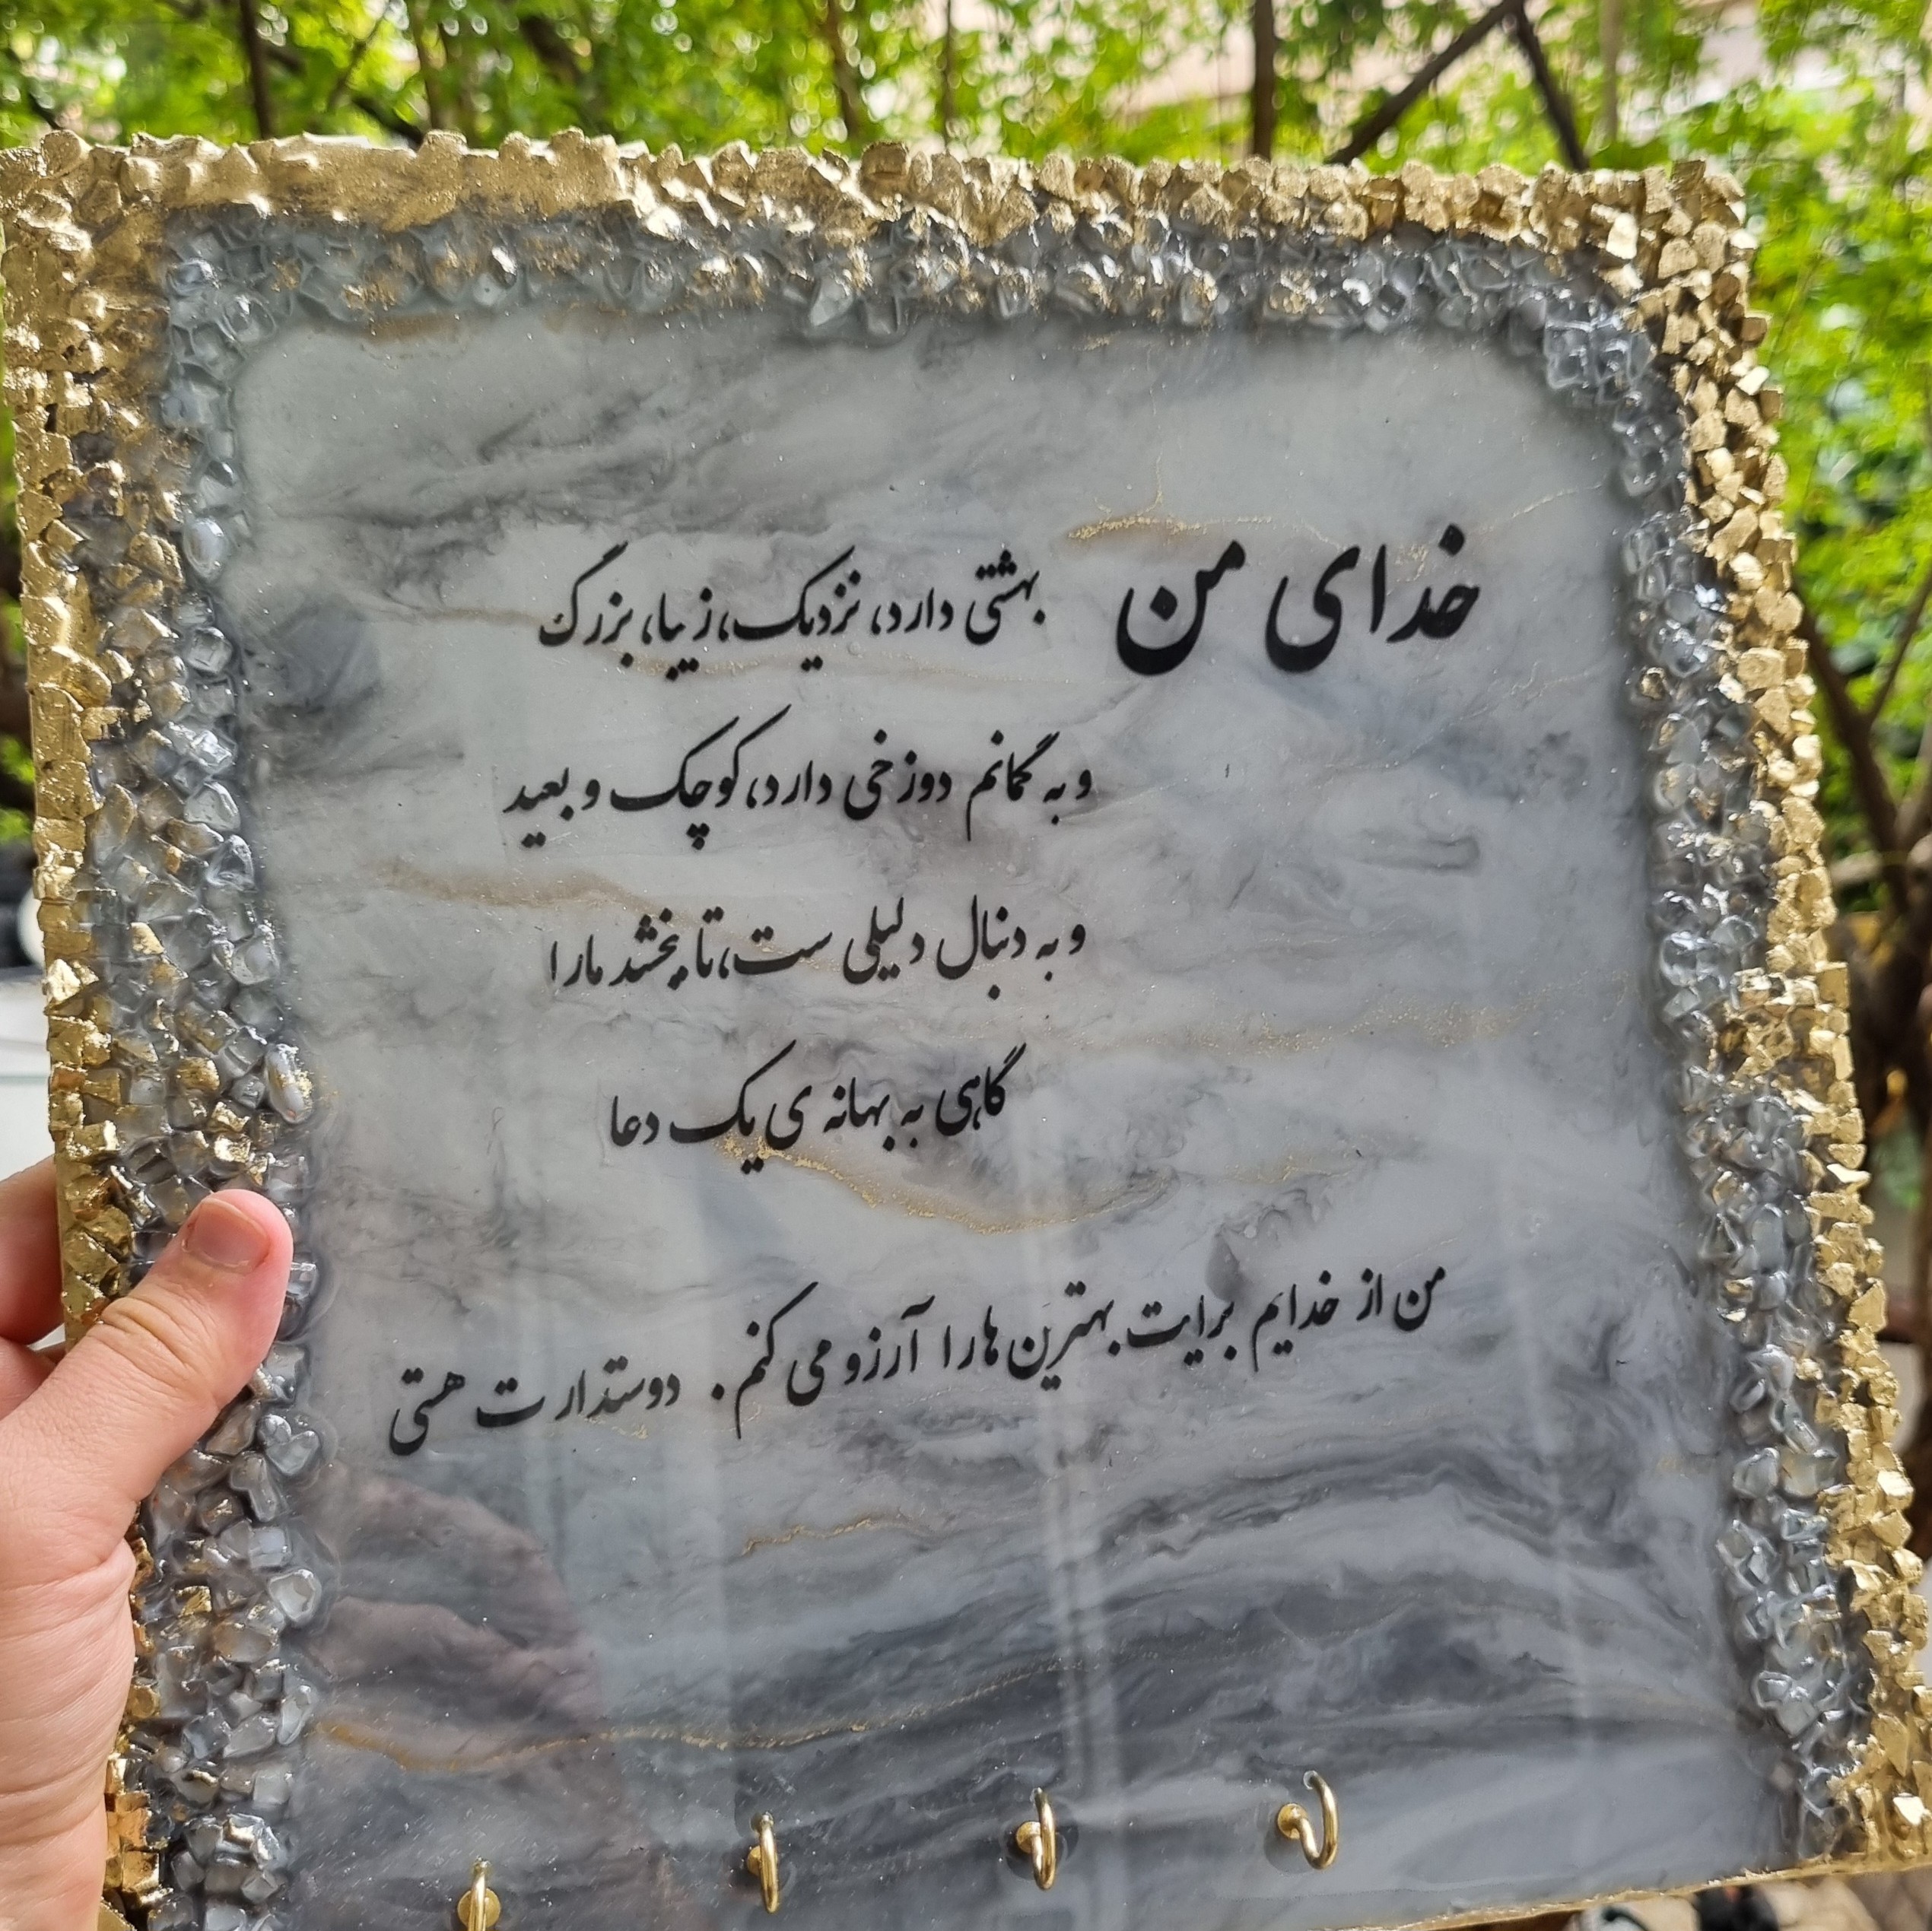 خدای من بهشتی دارد، نزدیک، زیبا، بزرگ
و به گمانم دوزخی دارد، کوچک و بعید
و به دنبال دلیلی ست، تا ببخشد ما را
گاهی به بهانه ی یک دعا
من از خدایم برایت بهترین ها را آرزو می کنم. دوستدارت هستی